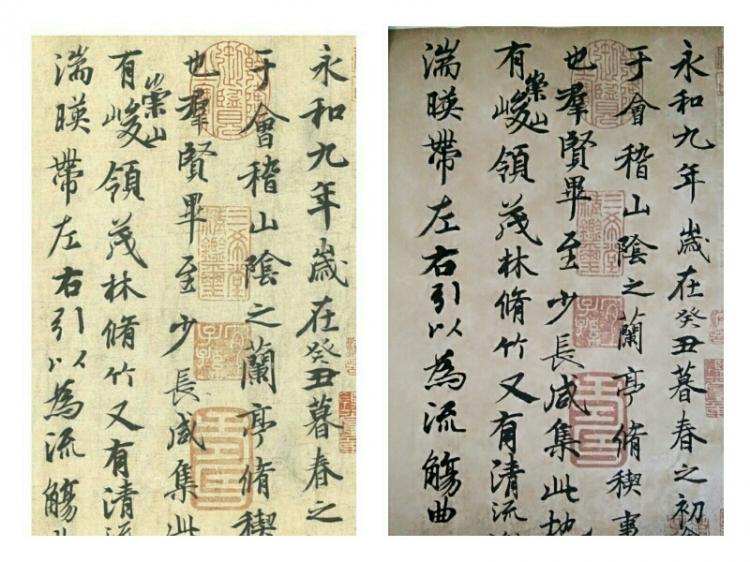 永和九年歲在癸丑暮春之
于會稽山陰之蘭亭脩稧
也羣賢畢至少長咸集此
有崇山峻領茂林脩竹又有清流
湍暎帶左右引以為流觴
永和九年歲在癸丑暮春之初
于會稽山陰之蘭亭脩稧事
也羣賢畢至少長咸集此地
有崇山峻領茂林脩竹又有清流
湍暎帶左右引以為流觴曲